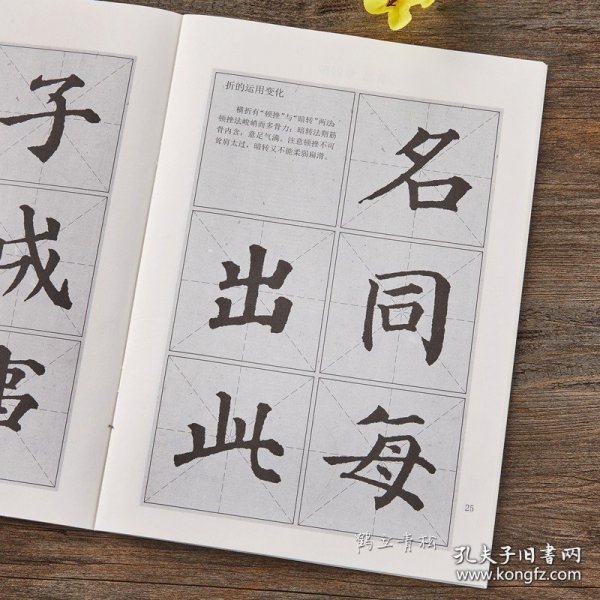 子
成
折的运用变化
横折有“顿挫”与“暗转”两法。
顿挫法峻峭而多骨力；暗转法则筋
骨内含，意足气满。注意顿挫不可
耸肩太过，暗转又不能柔弱扁滑。
名
出
同
此
每
25
鹤立青松
孔夫子旧书网
www.kongfz.com